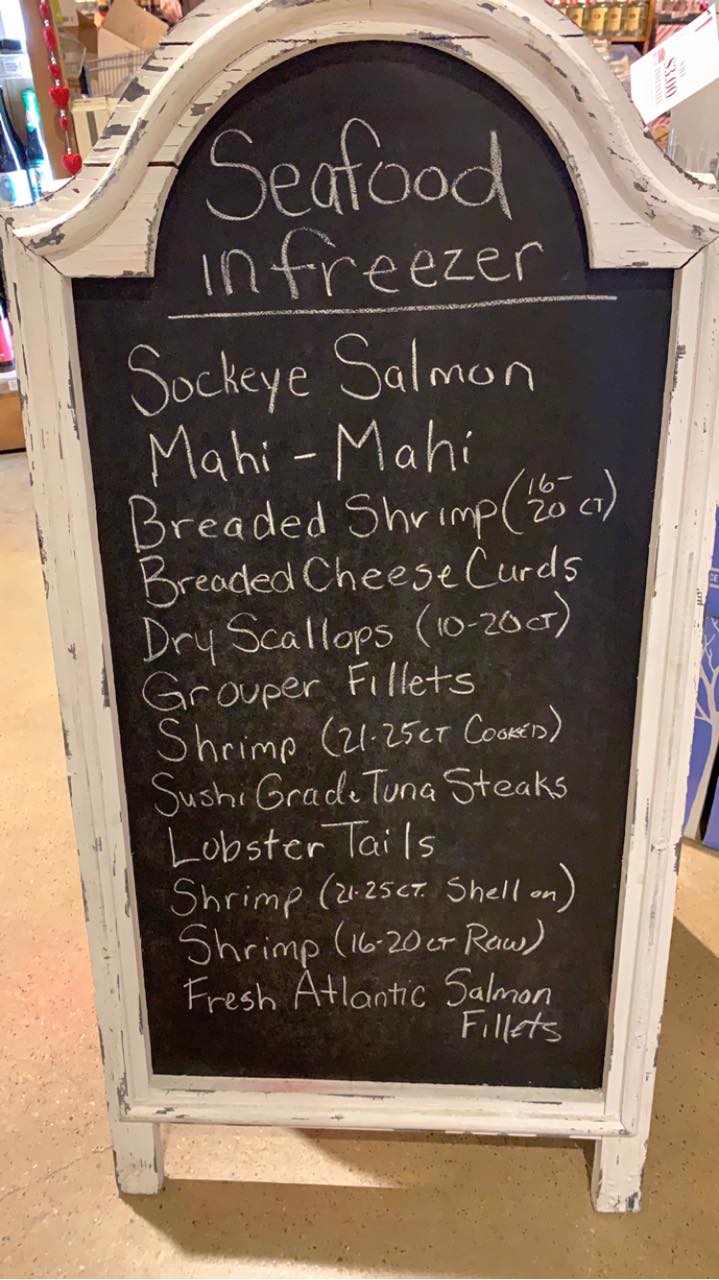 Seafood
in freezer
Sockeye Salmon
Mahi - Mahi
Breaded Shrimp (16-20 CT)
Breaded Cheese Curds
Dry Scallops (10-20 CT)
Grouper Fillets
Shrimp (21-25 CT COOKED)
Sushi Grade Tuna Steaks
Lobster Tails
Shrimp (21-25 CT. Shell on)
Shrimp (16-20 CT Raw)
Fresh Atlantic Salmon
Fillets
$3.00